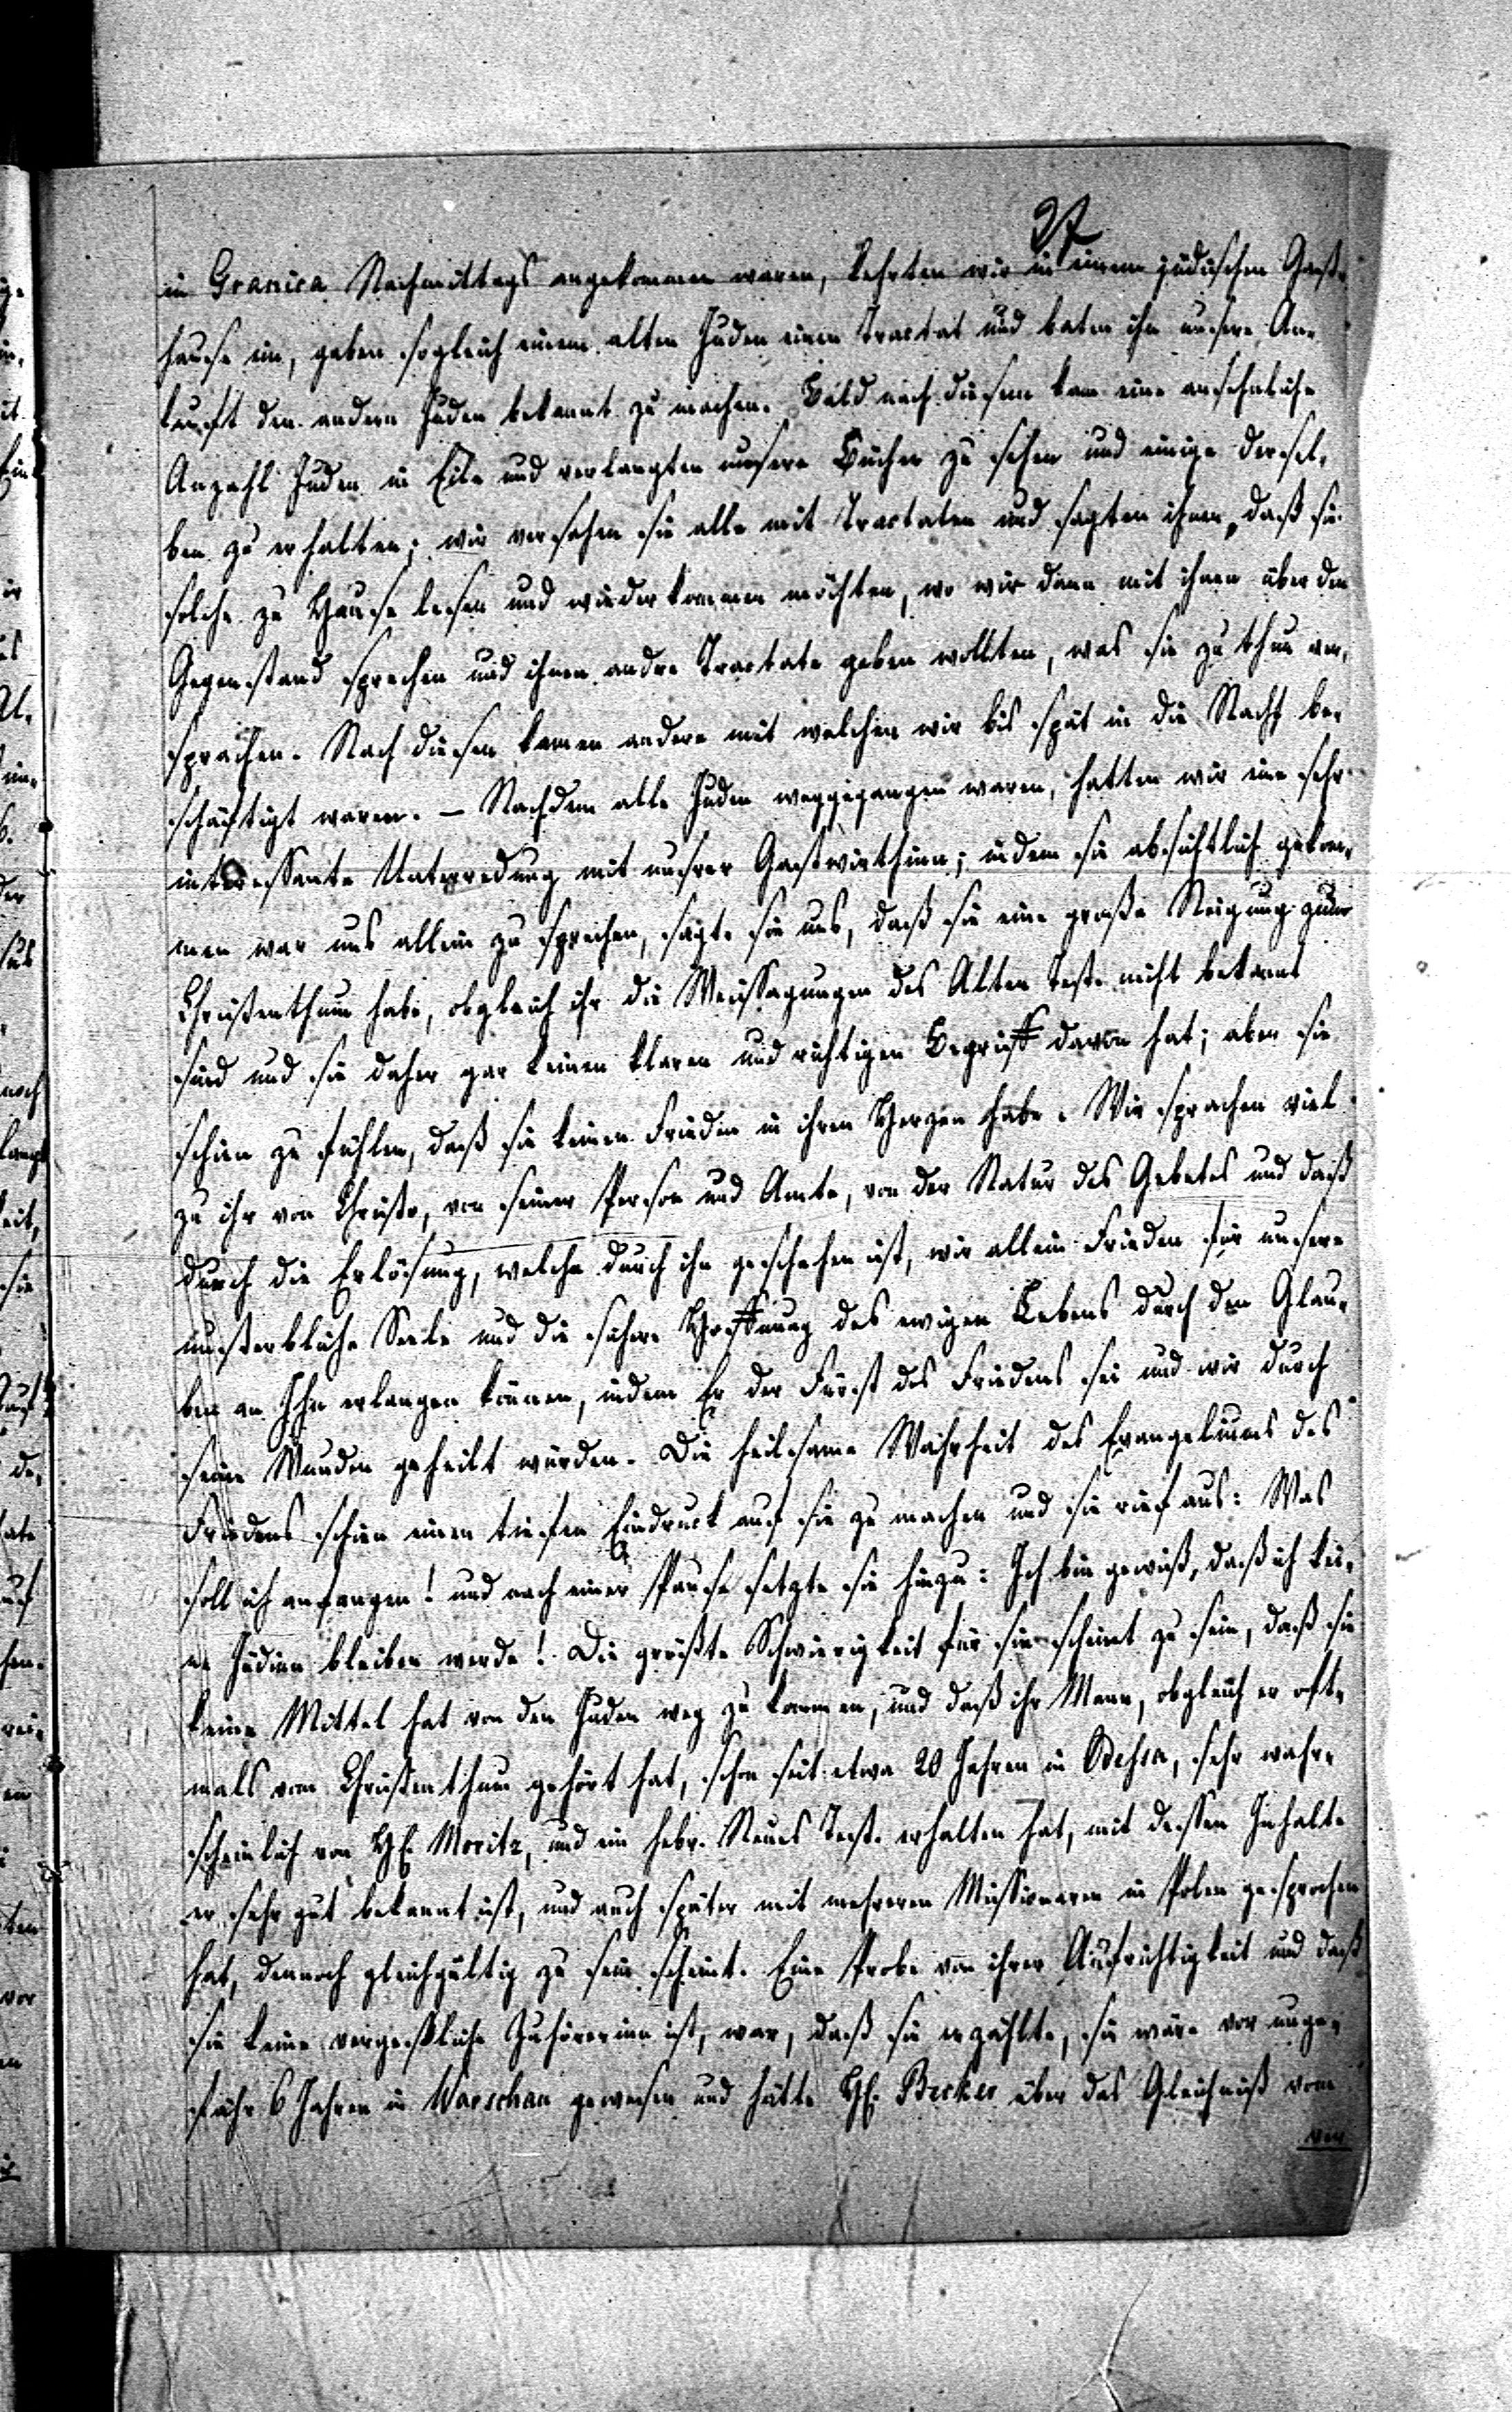 27
in Granica Nachmittags angekommen waren, kehrten wir in einem jüdischen Gast-
hause ein, gaben sogleich einem alten Juden einen Tractat und baten ihn unsere An-
kunft den andern Juden bekannt zu machen. Bald nach diesem kam eine ansehnliche
Anzahl Juden in Eile und verlangten unsere Bücher zu sehen und einige dersel-
ben zu erhalten; wir versahen sie alle mit Tractaten und sagten ihnen, daß sie
solche zu Hause lesen und wieder kommen möchten, wo wir dann mit ihnen über den
Gegenstand sprechen und ihnen andre Tractate geben wollten, was sie zu thun ver-
sprachen. Nach diesen kamen andere mit welchen wir bis spät in die Nacht be-
schäftigt waren. – Nachdem alle Juden weggegangen waren, hatten wir eine sehr
interessante Unterredung mit unsrer Gastwirthinn; indem sie absichtlich gekom-
men war uns allein zu sprechen, sagte sie uns, daß sie eine große Neigung zum
Christenthum habe, obgleich ihr die Weissagungen des Alten Test. nicht bekannt
sind und sie daher gar keinen klaren und richtigen Begriff davon hat; aber sie
schien zu fühlen, daß sie keinen Frieden in ihrem Herzen habe. Wir sprachen viel
zu ihr von Christo, von seiner Person und Amte, von der Natur des Gebetes und daß
durch die Erlösung, welche durch ihn geschehen ist, wir allein Frieden für unsere
unsterbliche Seele und die sichere Hoffnung des ewigen Lebens durch den Glau-
ben an Ihn erlangen können, indem Er der Fürst des Friedens sei und wir durch
seine Wunden geheilt würden. Die heilsame Wahrheit des Evangeliums des
Friedens schien einen tiefen Eindruck auf sie zu machen und sie rief aus: Was
soll ich anfangen! und nach einer Pause setzte sie hinzu: Ich bin gewiß, daß ich kei-
ne Jüdinn bleiben werde! Die größte Schwierigkeit für sie scheint zu sein, daß sie
keine Mittel hat von den Juden weg zu kommen, und daß ihr Mann, obgleich er oft-
mals vom Christenthum gehört hat, schon seit etwa 20 Jahren in Odessa, sehr wahr-
scheinlich von H. Moritz, und ein hebr. Neues Test. erhalten hat, mit dessen Inhalte
er sehr gut bekannt ist, und auch später mit mehreren Missionaren in Polen gesprochen
hat, dennoch gleichgültig zu sein scheint. Eine Probe von ihrer Aufrichtigkeit und daß
sie keine vergeßliche Zuhörerinn ist, war, daß sie erzählte, sie wäre vor unge-
fähr 6 Jahren in Warschau gewesen und hätte H. Becker über das Gleichniß vom
ver